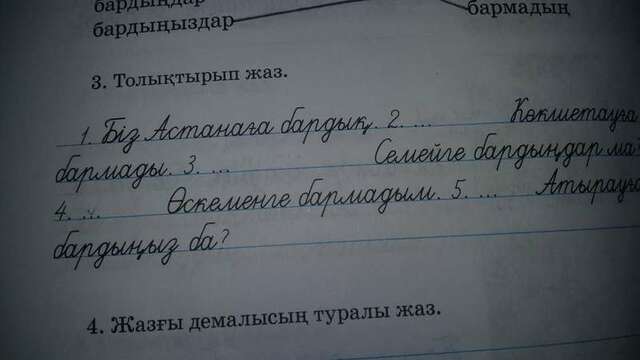 бардыңдар
бардыңыздар
бармадың
3. Толықтырып жаз.
1. Біз Астанаға бардық. 2. ... Көкшетауға
бармады. 3. ... Семейге бардыңдар ма?
4. ... Өскеменге бармадым. 5. ... Атырауға
бардыңыз ба?
4. Жазғы демалысың туралы жаз.